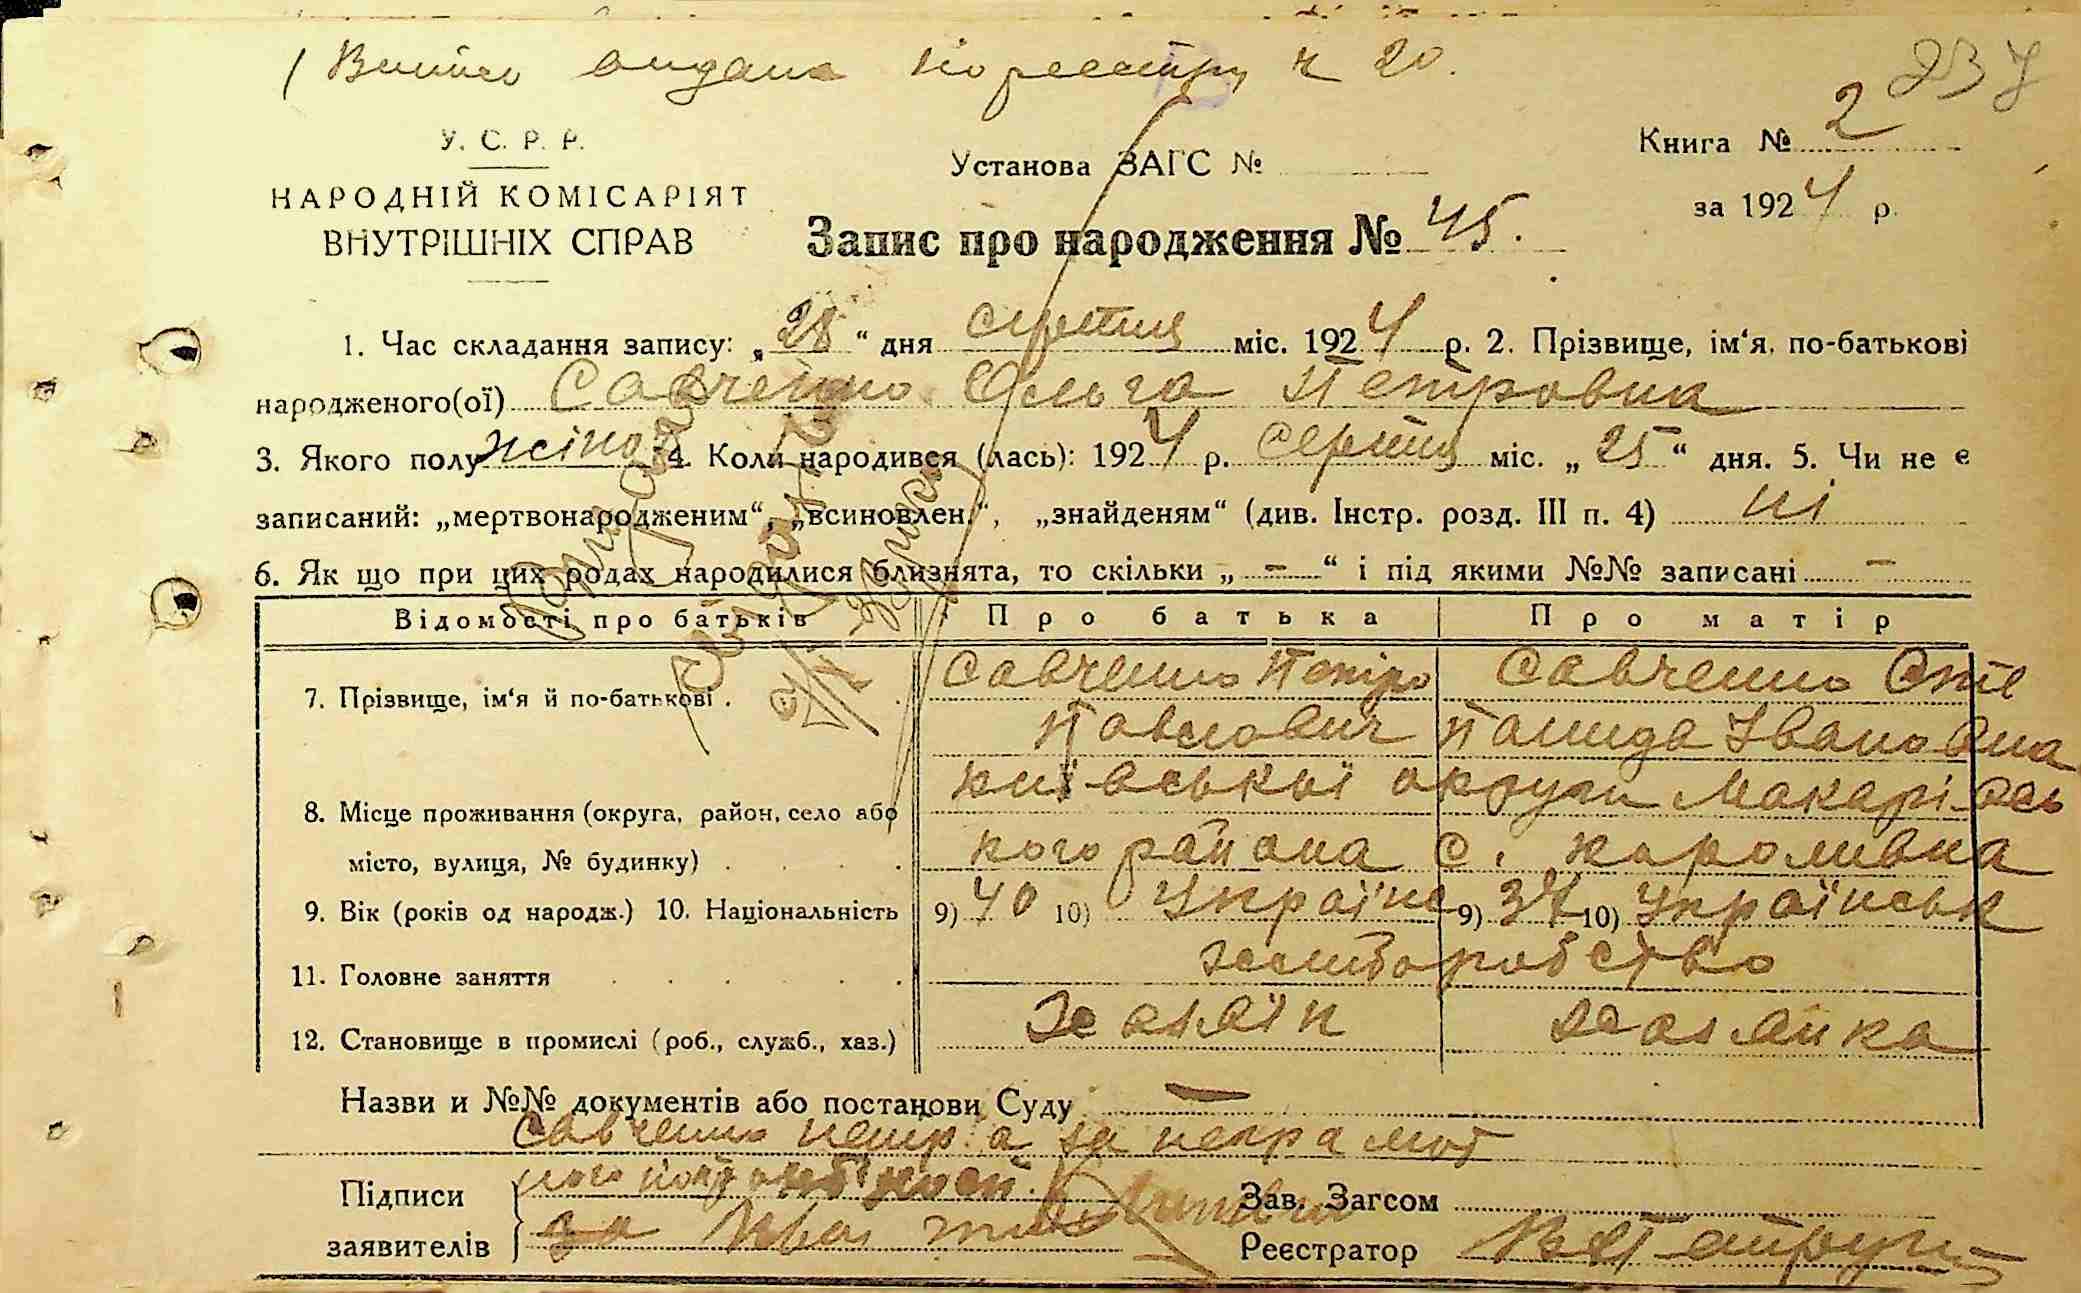 видана по реестру ч 20.
237
У. С. Р. Р.
НАРОДНІЙ КОМІСАРІЯТ
ВНУТРІШНІХ СПРАВ
Установа ЗАГС №
Книга № 2
за 1924 р.
Запис про народження № 45.
1. Час складання запису: „28“ дня серпня міс. 1924 р. 2. Прізвище, ім‘я, по-батькові
народженого(ої) Савченко Ольга Петровна
3. Якого полу жіно 4. Коли народився (лась): 1924 р. серпня міс. „25“ дня. 5. Чи не є
записаний: „мертвонародженим“, „всиновлен.“, „знайденям“ (див. Інстр. розд. III п. 4) ні
6. Як що при цих родах народилися близнята, то скільки „ – “ і під якими №№ записані –
Відомості про батьків Про батька Про матір
7. Прізвище, ім‘я й по-батькові . Савченко Петро Савченко Сте
Павлович панида Івановна
8. Місце проживання (округа, район, село або київської округи Макарівсь
місто, вулиця, № будинку) . . . . кого района с. Королівка
9. Вік (років од народж.) 10. Національність 9) 40 10) Україне 9) 37 10) Українськ
11. Головне заняття . . . . . . хліборобство
12. Становище в промислі (роб., служб., хаз.) хазяїн хазяйка
Назви и №№ документів або постанови Суду –
Савченко петра за неграмот
Підписи
заявителів
Зав. Загсом
Реєстратор